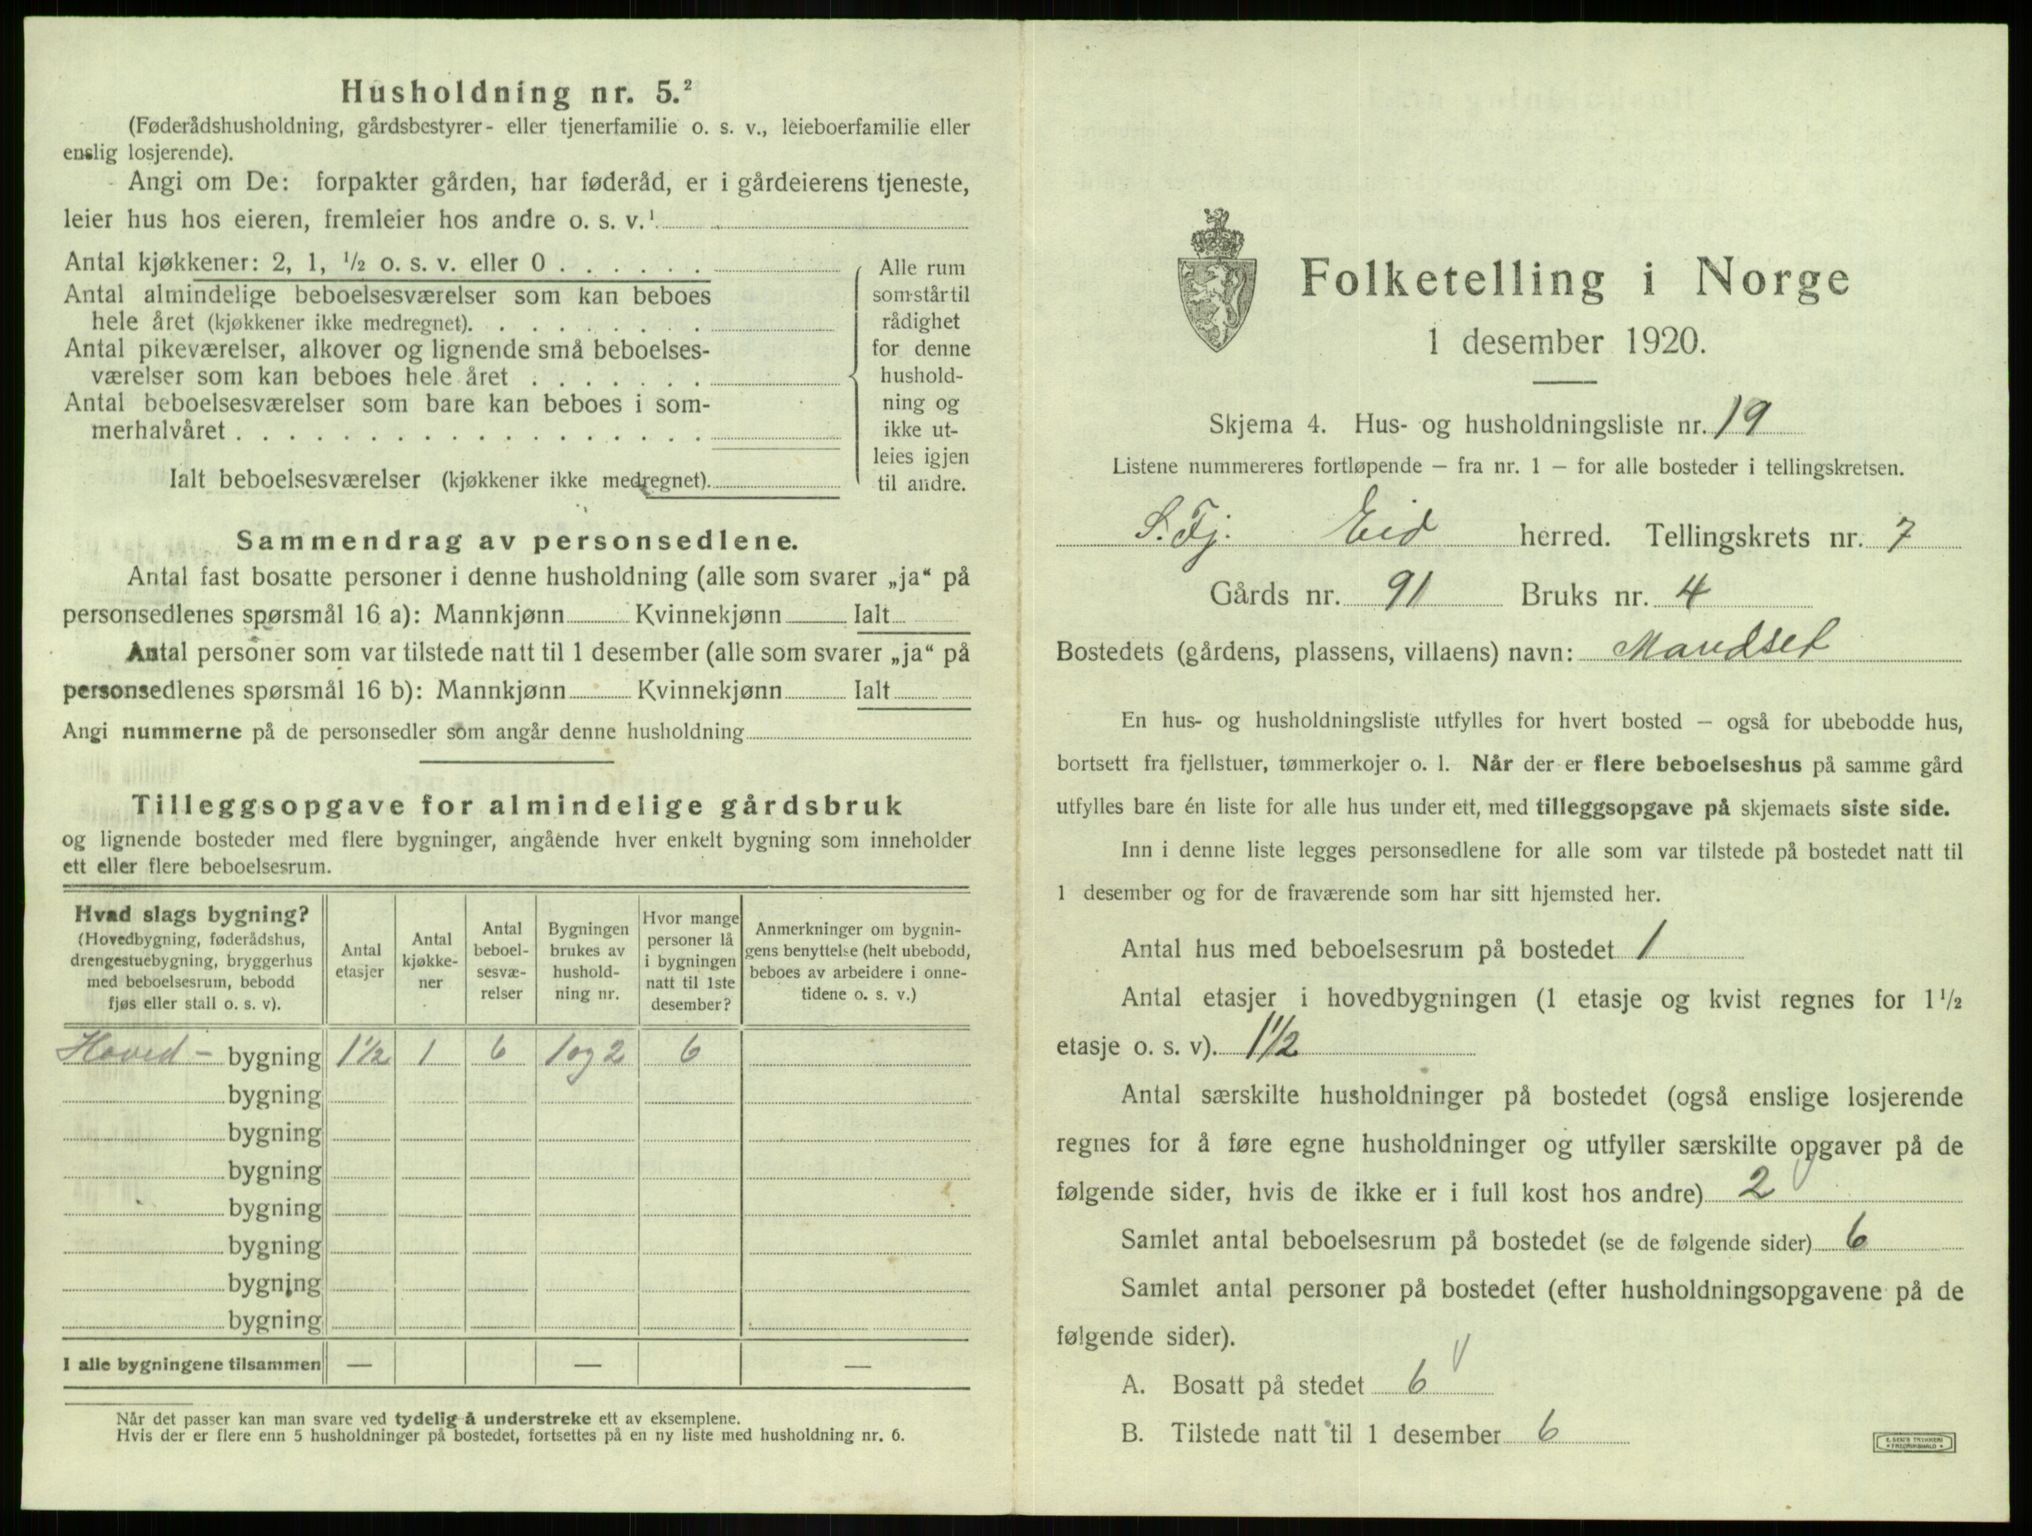 Husholdning nr. 5.²
(Føderådshusholdning, gårdsbestyrer- eller tjenerfamilie o. s. v., leieboerfamilie eller
enslig losjerende).
Angi om De: forpakter gården, har føderåd, er i gårdeierens tjeneste,
leier hus hos eieren, fremleier hos andre o. s. v.¹
Antal kjøkkener: 2, 1, ½ o. s. v. eller 0
Antal almindelige beboelsesværelser som kan beboes
hele året (kjøkkener ikke medregnet).
Antal pikeværelser, alkover og lignende små beboelses-
værelser som kan beboes hele året
Antal beboelsesværelser som bare kan beboes i som-
merhalvåret
Ialt beboelsesværelser (kjøkkener ikke medregnet).
Alle rum
som står til
rådighet
for denne
hushold-
ning og
ikke ut-
leies igjen
til andre.
Sammendrag av personsedlene.
Antal fast bosatte personer i denne husholdning (alle som svarer „ja“ på
personsedlenes spørsmål 16 a): Mannkjønn Kvinnekjønn Ialt
Antal personer som var tilstede natt til 1 desember (alle som svarer „ja“ på
personsedlenes spørsmål 16 b): Mannkjønn Kvinnekjønn Ialt
Angi nummerne på de personsedler som angår denne husholdning
Tilleggsopgave for almindelige gårdsbruk
og lignende bosteder med flere bygninger, angående hver enkelt bygning som inneholder
ett eller flere beboelsesrum.
Hvad slags bygning?
(Hovedbygning, føderådshus,
drengestuebygning, bryggerhus
med beboelsesrum, bebodd
fjøs eller stall o. s. v).
Antal
etasjer
Antal
kjøkke-
ner
Antal
beboel-
sesvæ-
relser
Bygningen
brukes av
hushold-
ning nr.
Hvor mange
personer lå
i bygningen
natt til 1ste
desember?
Anmerkninger om bygnin-
gens benyttelse (helt ubebodd,
beboes av arbeidere i onne-
tidene o. s. v.)
Hoved- bygning 1½ 1 6 1 og 2 6
bygning
bygning
bygning
bygning
bygning
bygning
bygning
I alle bygningene tilsammen — — —
Når det passer kan man svare ved tydelig å understreke ett av eksemplene.
Hvis der er flere enn 5 husholdninger på bostedet, fortsettes på en ny liste med husholdning nr. 6.
Folketelling i Norge
1 desember 1920.
Skjema 4. Hus- og husholdningsliste nr. 19
Listene nummereres fortløpende – fra nr. 1 – for alle bosteder i tellingskretsen.
S. Fj. Eid herred. Tellingskrets nr. 7
Gårds nr. 91 Bruks nr. 4
Bostedets (gårdens, plassens, villaens) navn: Mandset
En hus- og husholdningsliste utfylles for hvert bosted – også for ubebodde hus,
bortsett fra fjellstuer, tømmerkojer o. l. Når der er flere beboelseshus på samme gård
utfylles bare én liste for alle hus under ett, med tilleggsopgave på skjemaets siste side.
Inn i denne liste legges personsedlene for alle som var tilstede på bostedet natt til
1 desember og for de fraværende som har sitt hjemsted her.
Antal hus med beboelsesrum på bostedet 1
Antal etasjer i hovedbygningen (1 etasje og kvist regnes for 1½
etasje o. s. v). 1½
Antal særskilte husholdninger på bostedet (også enslige losjerende
regnes for å føre egne husholdninger og utfyller særskilte opgaver på de
følgende sider, hvis de ikke er i full kost hos andre) 2
Samlet antal beboelsesrum på bostedet (se de følgende sider) 6
Samlet antal personer på bostedet (efter husholdningsopgavene på de
følgende sider).
A. Bosatt på stedet 6
B. Tilstede natt til 1 desember 6
E. SEM'S TRYKKERI
FREDRIKSHALD